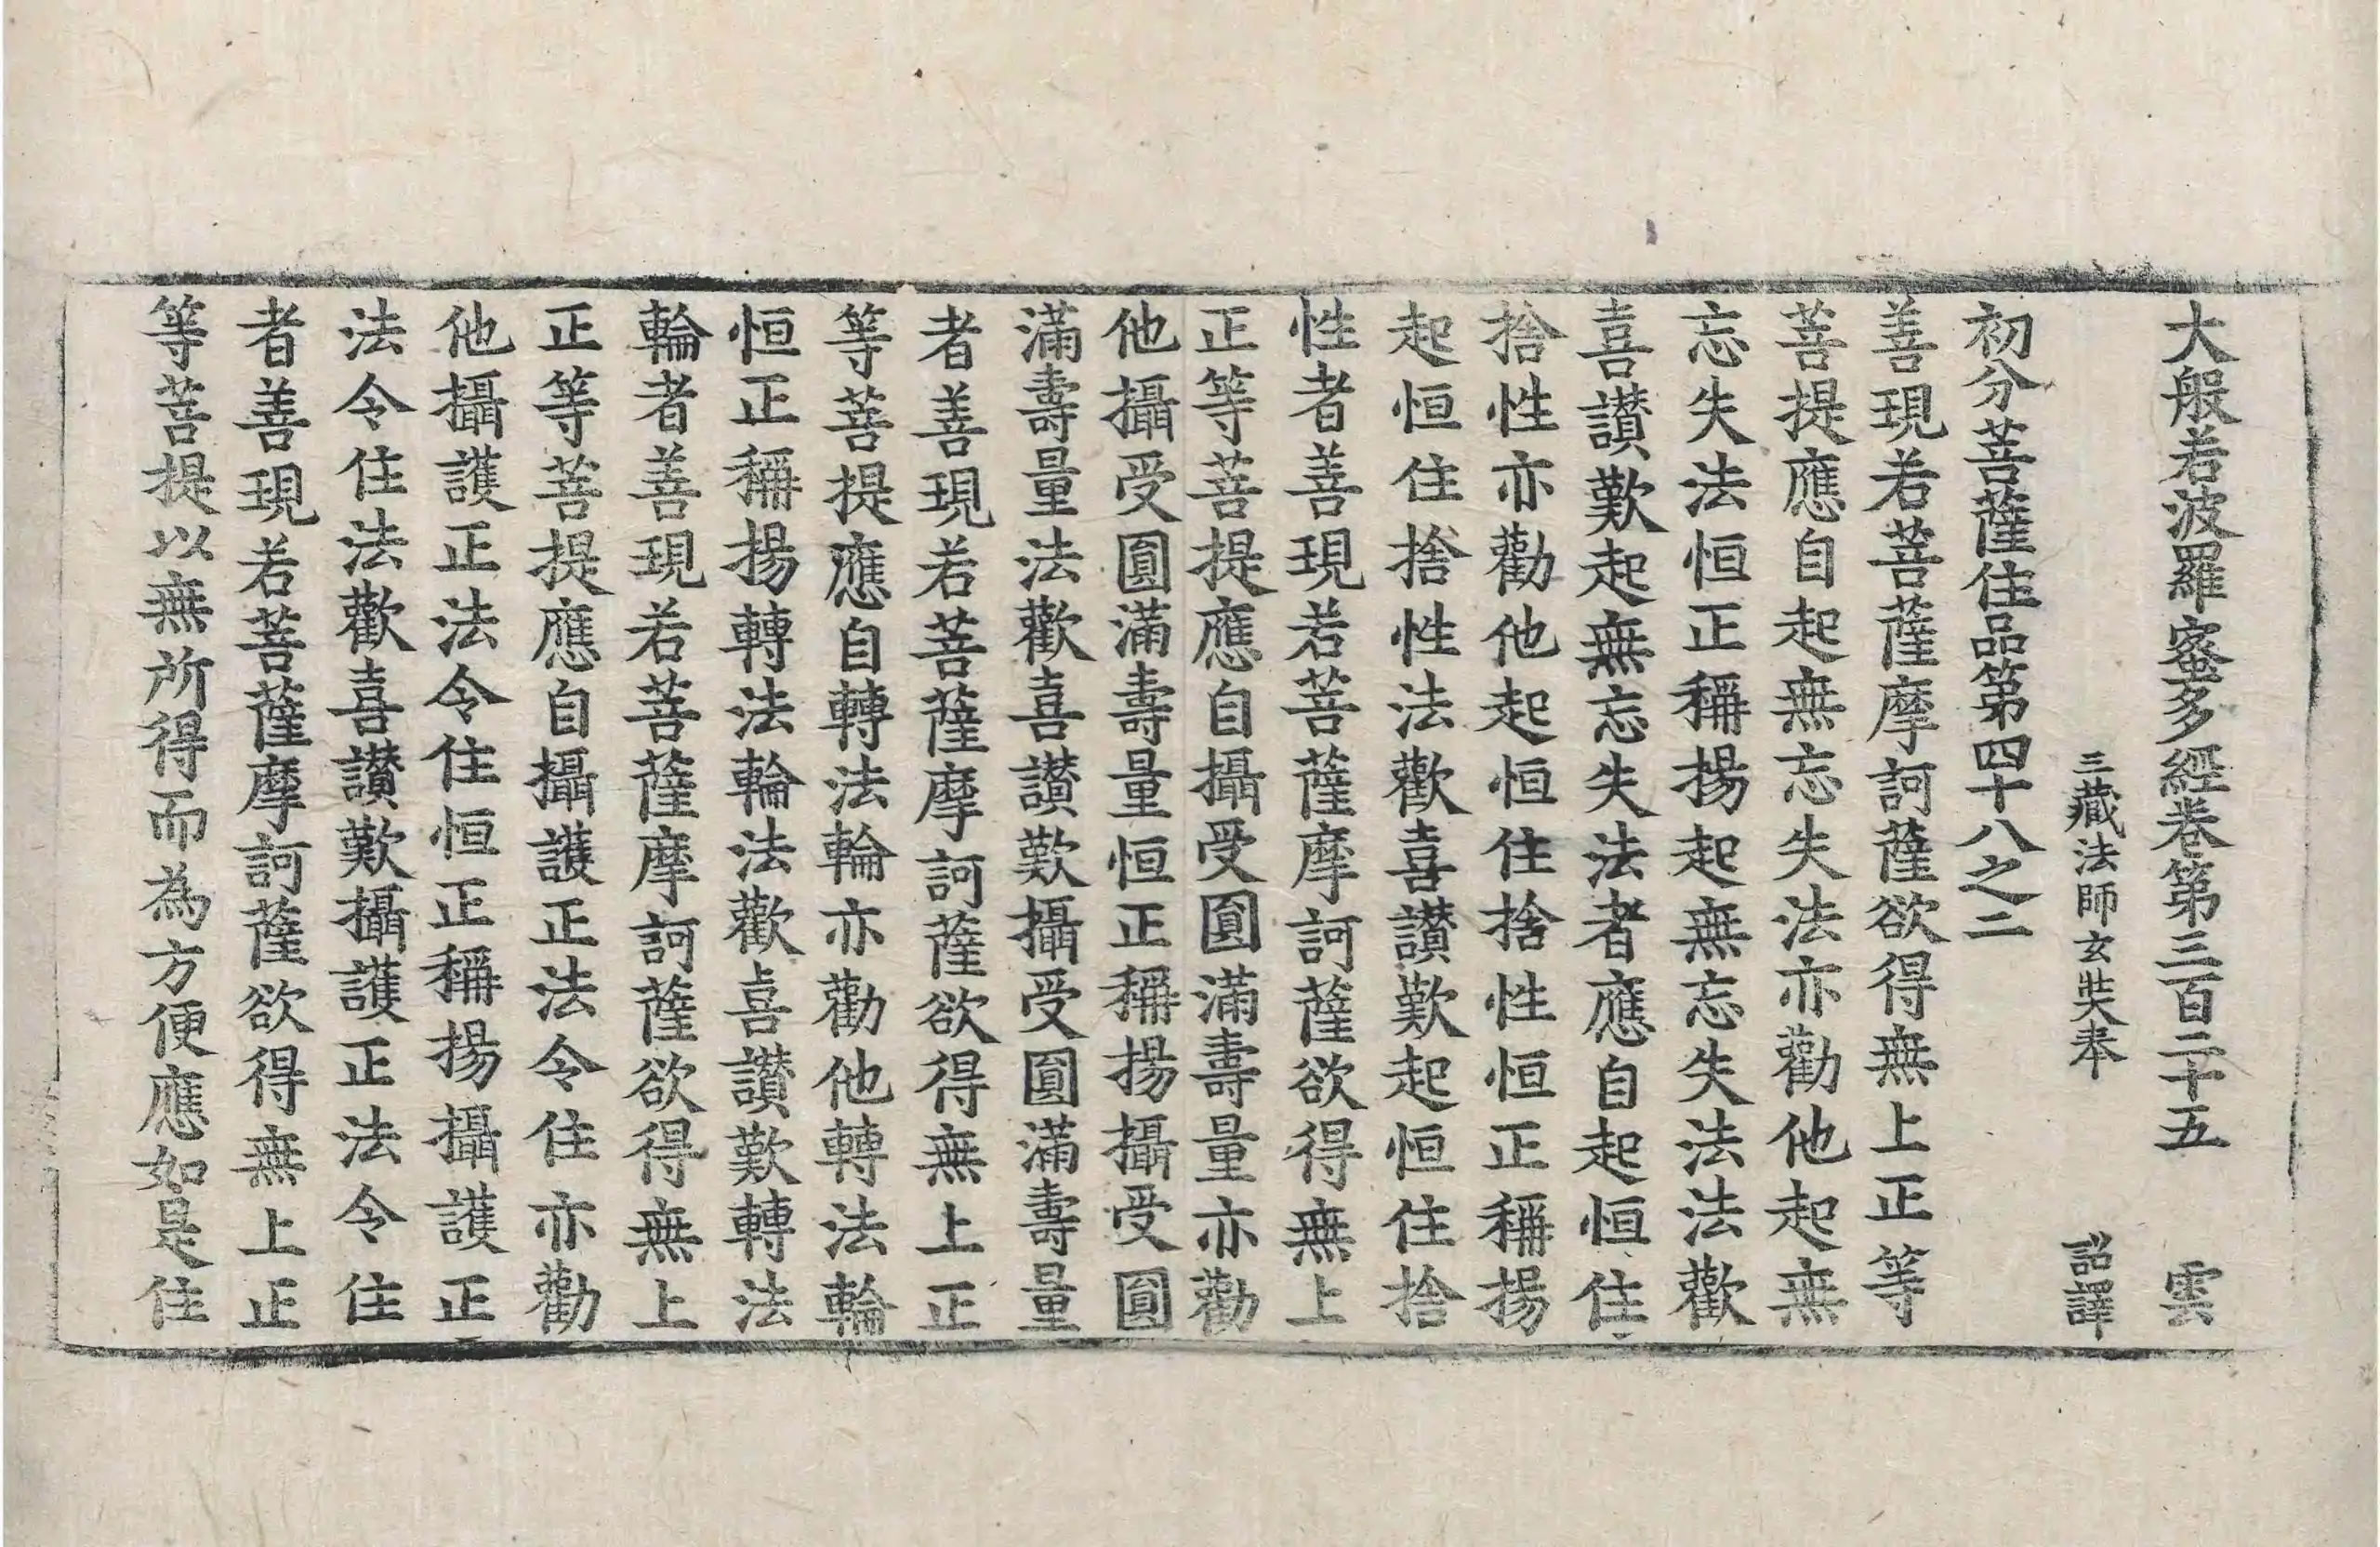 大般若波羅蜜多經卷第三百二十五　雲
三藏法師玄奘奉　詔譯
初分菩薩住品第四十八之二
善現若菩薩摩訶薩欲得無上正等
菩提應自起無忘失法亦勸他起無
忘失法恒正稱揚起無忘失法法歡
喜讃歎起無忘失法者應自起恒住
捨性亦勸他起恒住捨性恒正稱揚
起恒住捨性法歡喜讃歎起恒住捨
性者善現若菩薩摩訶薩欲得無上
正等菩提應自攝受圓滿壽量亦勸
他攝受圓滿壽量恒正稱揚攝受圓
滿壽量法歡喜讃歎攝受圓滿壽量
者善現若菩薩摩訶薩欲得無上正
等菩提應自轉法輪亦勸他轉法輪
恒正稱揚轉法輪法歡喜讃歎轉法
輪者善現若菩薩摩訶薩欲得無上
正等菩提應自攝護正法令住亦勸
他攝護正法令住恒正稱揚攝護正
法令住法歡喜讃歎攝護正法令住
者善現若菩薩摩訶薩欲得無上正
等菩提以無所得而為方便應如是住